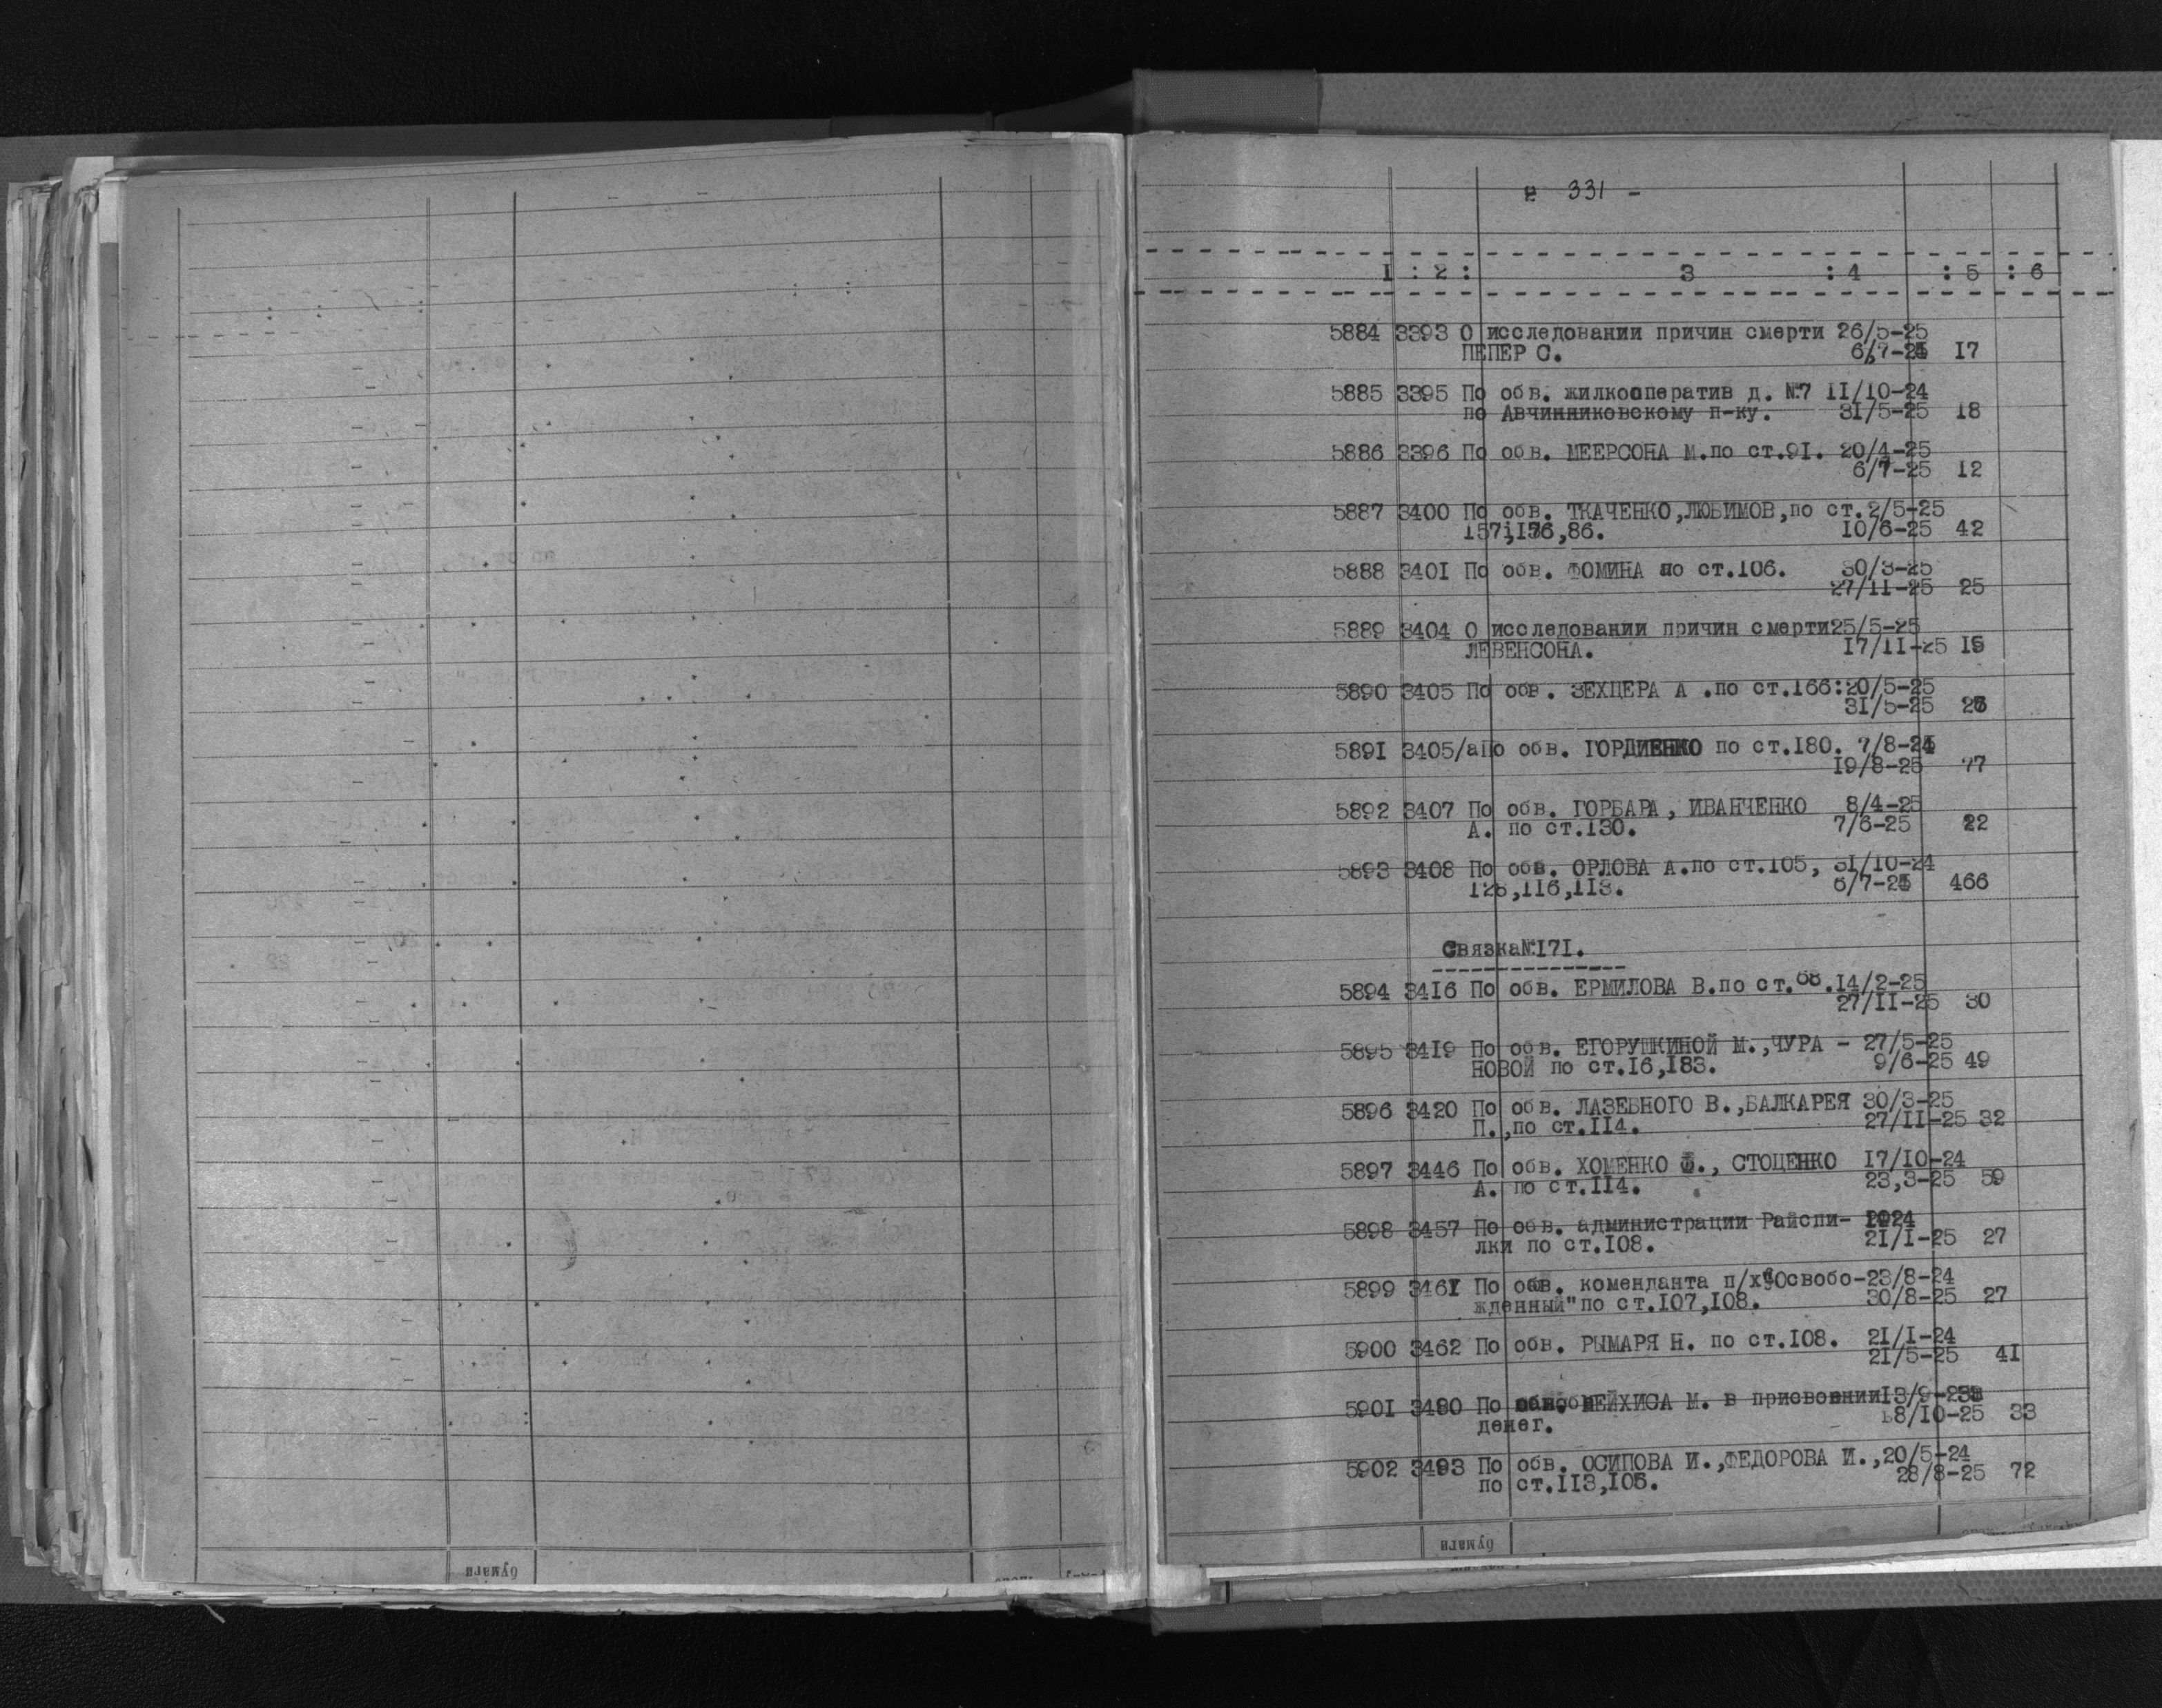 - 331 -
1 : 2 : 3 : 4 : 5 : 6
5884 3393 О исследовании причин смерти 26/5-25
ПЕПЕР С. 6/7-25 17
5885 3395 По обв. жилкооператив д. №7 11/10-24
по Авчинниковскому п-ку. 31/5-25 18
5886 3396 По обв. МЕЕРСОНА М.по ст.91. 20/4-25
6/7-25 12
5887 3400 По обв. ТКАЧЕНКО,ЛЮБИМОВ,по ст.2/5-25
157,176,86. 10/6-25 42
5888 3401 По обв. ФОМИНА по ст.106. 30/3-25
27/11-25 25
5889 3404 О исследовании причин смерти25/5-25
ЛЕВЕНСОНА. 17/11-25 15
5890 3405 По обв. ЗЕХЦЕРА А .по ст.166:20/5-25
31/5-25
5891 3405/аПо обв. ГОРДИЕНКО по ст.180. 7/8-24
19/8-25 77
5892 3407 По обв. ГОРБАРА, ИВАНЧЕНКО 8/4-25
А. по ст.130. 7/6-25 22
5893 3408 По обв. ОРЛОВА А.по ст.105, 31/10-24
128,116,113. 6/7-25 466
Связка№171.
5894 3416 По обв. ЕРМИЛОВА В.по ст.68.14/2-25
27/11-25 30
5895 3419 По обв. ЕГОРУШКИНОЙ М.,ЧУРА - 27/5-25
НОВОЙ по ст.16,183. 9/6-25 49
5896 3420 По обв. ЛАЗЕБНОГО В.,БАЛКАРЕЯ 30/3-25
П.,по ст.114. 27/11-25 32
5897 3446 По обв. ХОМЕНКО Ф., СТОЦЕНКО 17/10-24
А. по ст.114. 23,3-25 59
5898 3457 По обв. администрации Райспи- 1924
лки по ст.108. 21/1-25 27
5899 3461 По обв. коменданта п/х"Освобо-23/8-24
жденный"по ст.107,108. 30/8-25 27
5900 3462 По обв. РЫМАРЯ Н. по ст.108. 21/1-24
21/5-25 41
5901 3480 По обв. МЕЙХИСА М. в присвоении13/9-23
8/10-25 33
денег.
5902 3493 По обв. ОСИПОВА И.,ФЕДОРОВА И.,20/5-24
28/8-25 72
по ст.113,105.
бумаги
бумаги